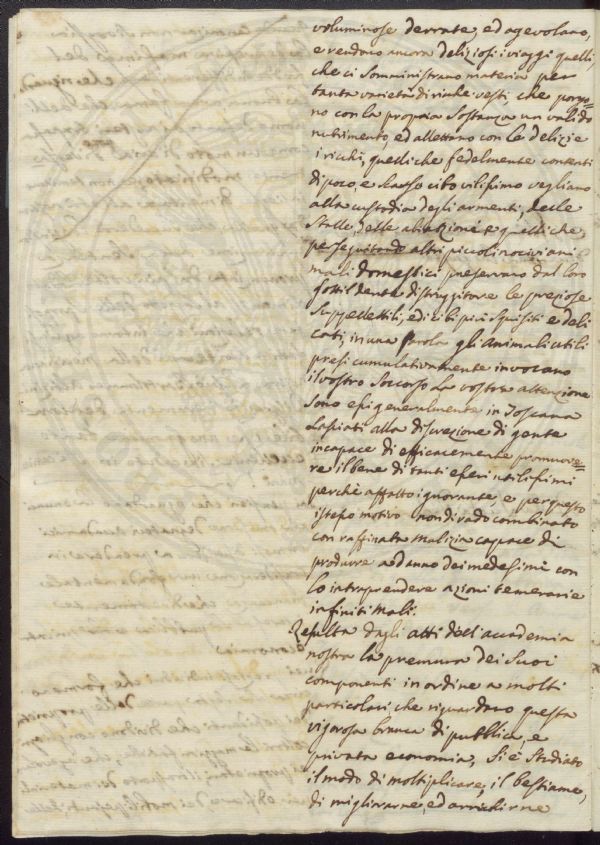 voluminose derrate, ed agevolano,
e rendono ancora deliziosi i viaggi quelli,
che ci somministrano materia per
tanta varietà di ricche vesti, che porgo=
no con la propria sostanza un valido
nutrimento, ed allettano con le delizie
i ricchi, quelli che fedelmente contenti
di poco, e scarso cibo vilissimo vegliano
alla custodia degli armenti, delle
stalle, delle abitazioni e quelli che,
perseguitando altri piccoli nocivi ani
mali domestici preservano dal loro
sottil dente distruggitore le preziose
suppellettili, ed i cibi più squisiti e deli
cati, in una parola gli animali utili
presi cumulativamente invocano
il vostro soccorso la vostra attenzione
sono essi generalmente in Toscana
lasciati alla discrezione di gente
incapace di efficacemente promuove=
re il bene di tanti esseri utilissimi
perchè affatto ignorante e per questo
istesso motivo non di rado combinato
con raffinata malizia capace di
produrre a danno dei medesimi con
lo intraprendere azioni temerarie
infiniti mali.
Resulta dagli atti dell'accademia
nostra la premura dei suoi
componenti in ordine a molti
particolari che riguardano questa
vigorosa branca di pubblica, e
privata economia, si è studiato
il modo di moltiplicare il bestiame,
di migliorarne, ed arricchirne